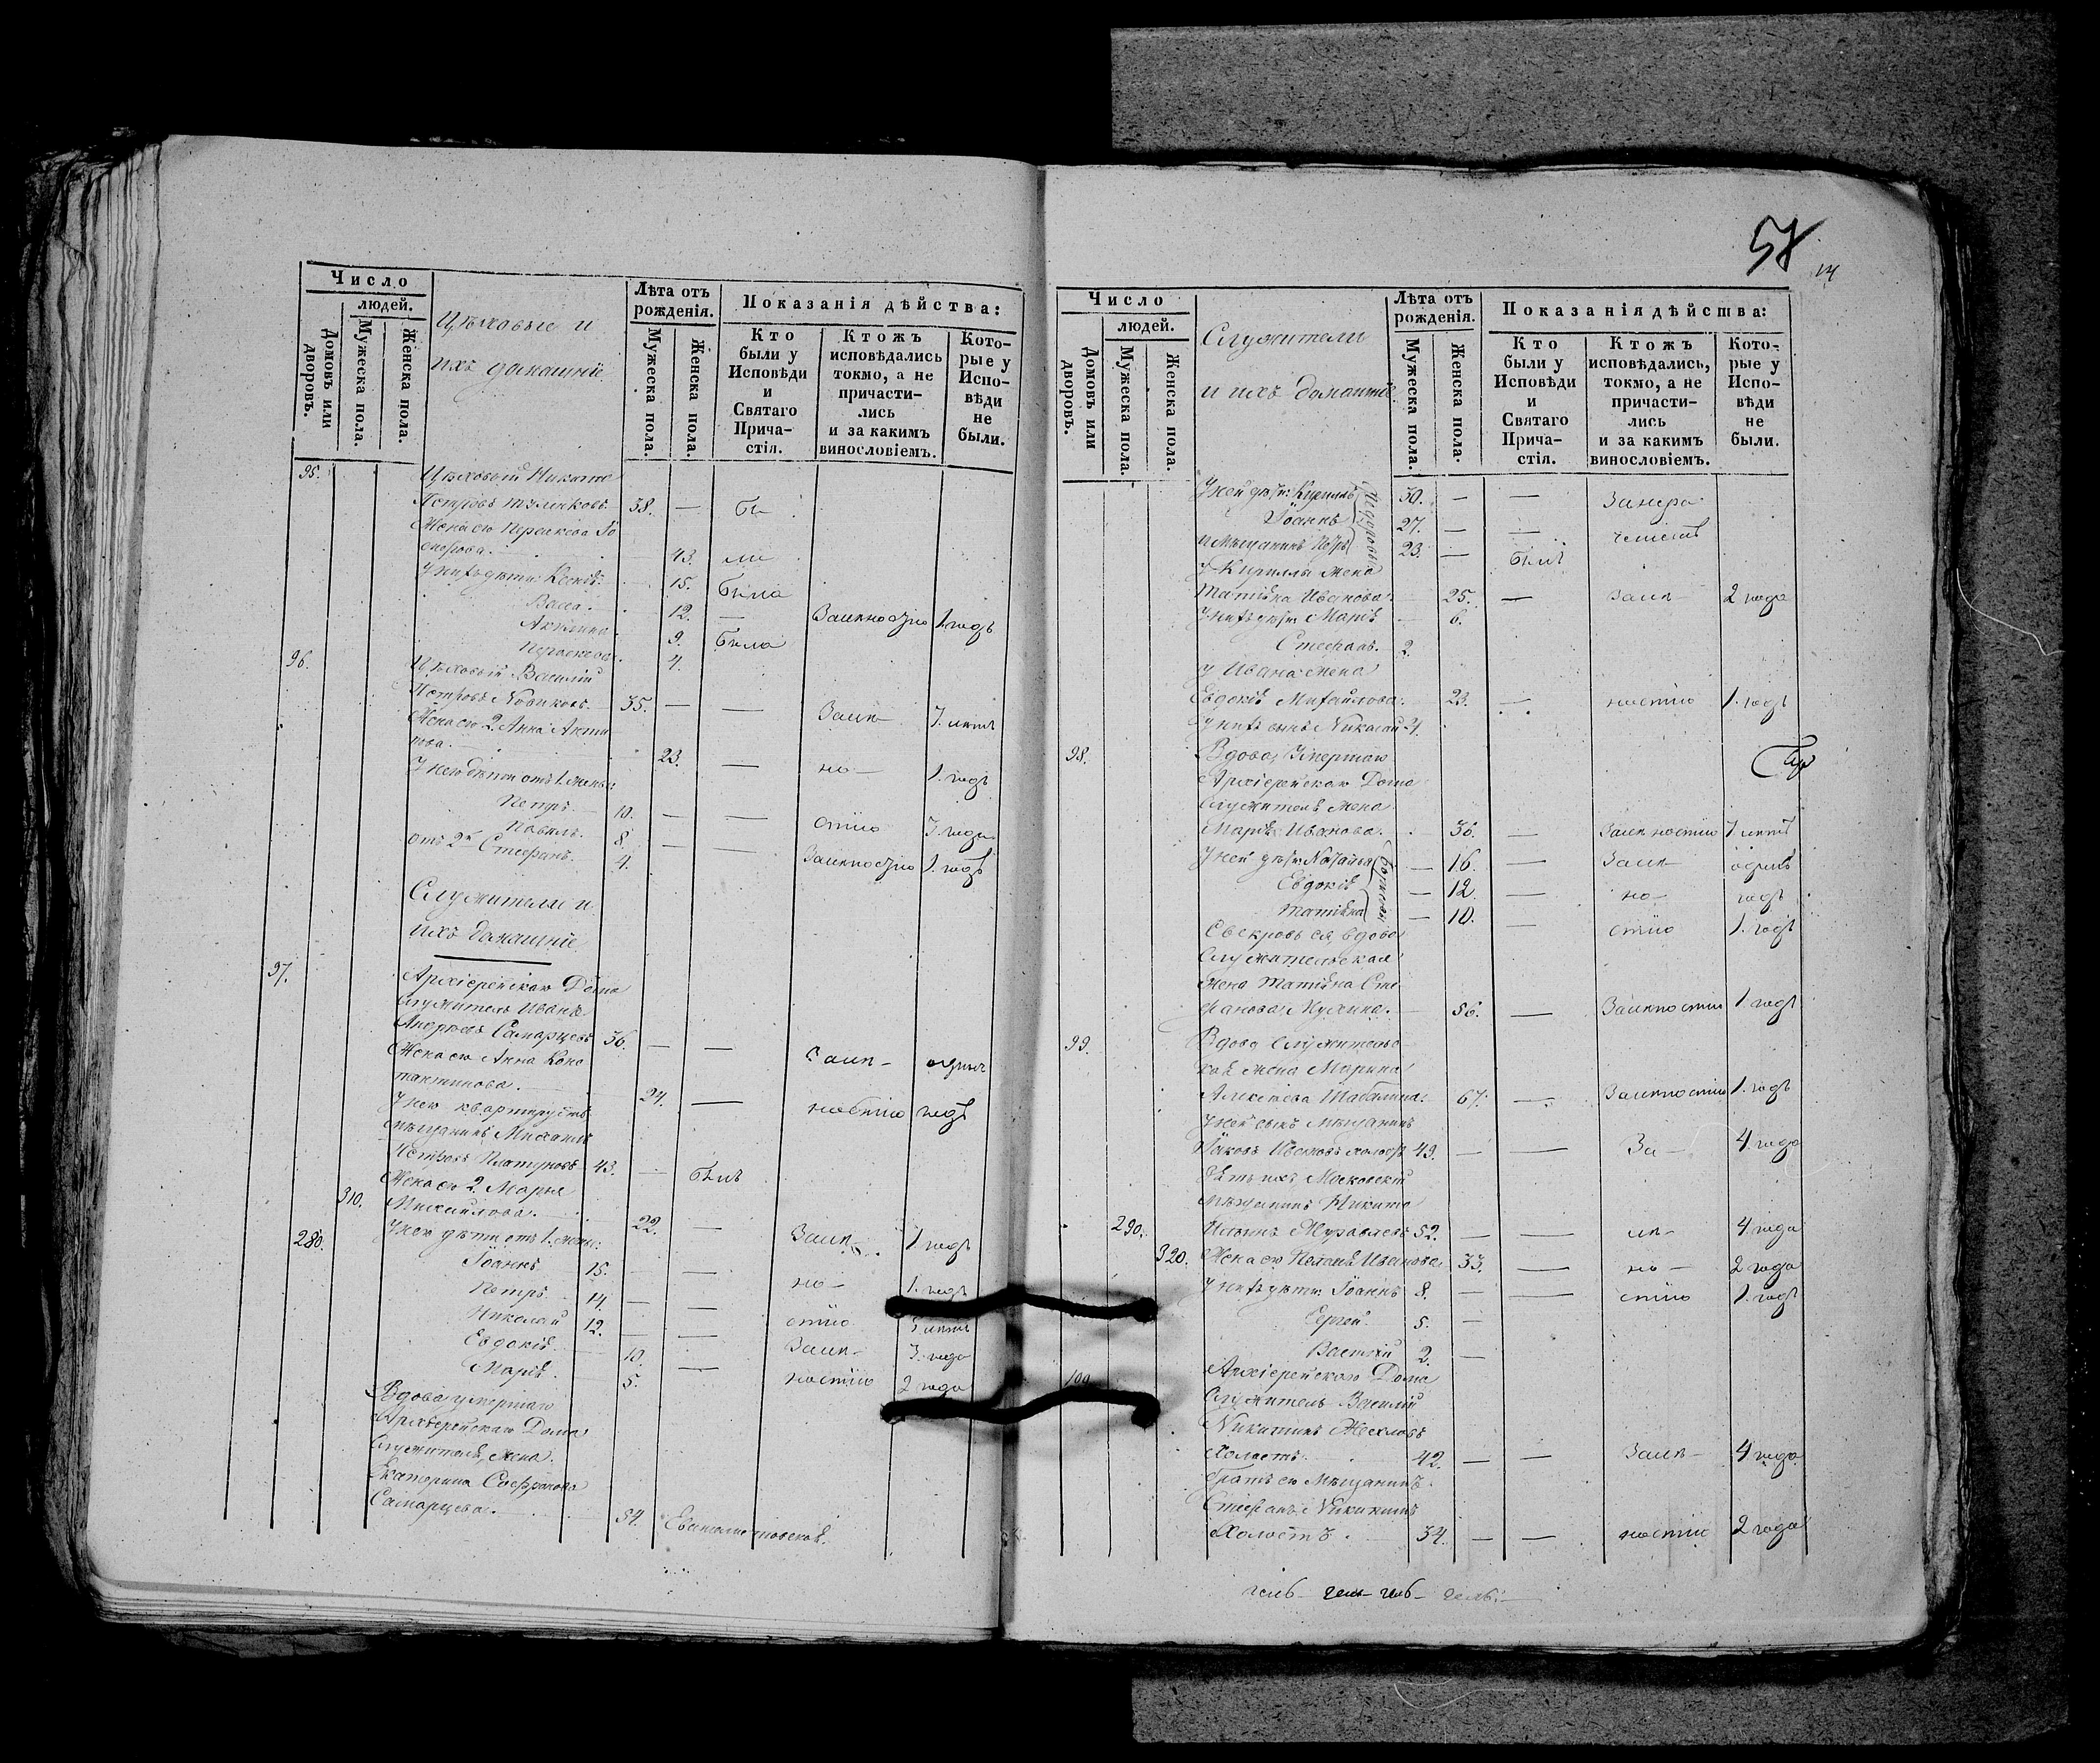 Число
людей.
Домовъ или дворовъ.
Мужеска пола.
Женска пола.
Цѣховые и
ихъ домашніе
Лѣта отъ
рожденія.
Мужеска пола.
Женска пола.
Показанія дѣйства:
Кто
были у
Исповѣди
и
Святаго
Прича-
стія.
Ктожъ
исповѣдались
токмо, а не
причасти-
лись
и за какимъ
винословіемъ.
Кото-
рые у
Испо-
вѣди
не
были.
95. Цѣховый Никита
Петровъ 38. — Бы
Жена его Параскева
43. ли
У нихъ дѣти: 15. Была
Васса. 12. — Заикностію 1. годъ
Акилина 9. Была
Параскева. 4.
96. Цѣховый Василій
Петровъ Новиковъ. 35. — — Заик- 7. лѣтъ
Жена его 2. Анна Анти
пова. 23. — но- 1. годъ
У него дѣти отъ 1. жены:
Петръ. 10. — — стію 3. года
Павелъ. 8. — —
отъ 2й Стефанъ. 4. Заикностію 1. годъ
Служители и
ихъ домашніе
97. Архіерейскаго Дома
служитель Иванъ
Андреевъ Самарцевъ 36. — — Заик- одинъ
Жена его Анна Конс
тантинова. 24. — ностію годъ
У него квартируетъ
мѣщанинъ Михаилъ
Петровъ Платуновъ 43. — Былъ
Жена его 2. Марья
310. Михайлова. 22. — Заик- 1 годъ
280. У нея дѣти отъ 1. жены:
Іоаннъ 15. — — но- 1. годъ
Петръ. 14. — — стію
Николай 12. — — Заик- 3. года
Евдокія. 10. — ностію 2 года
Марія. 5.
Вдова умершаго
Архіерейскаго Дома
служителя, жена.
Екатерина
Самарцева. 54.
58
14
Число
людей.
Домовъ или дворовъ.
Мужеска пола.
Женска пола.
Служители
и ихъ домашніе
Лѣта отъ
рожденія.
Мужеска пола.
Женска пола.
Показанія дѣйства:
Кто
были у
Исповѣди
и
Святаго
Прича-
стія.
Ктожъ
исповѣдались,
токмо, а не
причасти-
лись
и за какимъ
винословіемъ.
Кото-
рые у
Испо-
вѣди
не
были.
У ней дѣти: Кириллъ 30. — —
Іоаннъ 27. — —
и Мѣщанинъ Петръ 23. — Былъ
У Кириллы жена
Татіана Иванова. 25. — Заик- 2 года
У нихъ дѣти Марія — 6.
Стефанъ. 2.
У Ивана жена
Евдокія Михайлова. 23. — ностію 1. годъ
У нихъ сынъ Николай 4.
98. Вдова, Умершаго
Архіерейскаго Дома
служителя жена
Марія Иванова. 36. — Заикностію 7 лѣтъ
У ней дѣти: Наталья — 16. — Заик- одинъ
Евдокія — 12. — но- годъ
Татіана — 10. — стію 1. годъ
Свекровь ея, вдова
служительская
жена Татіана Сте
фанова 56. — Заикностію 1 годъ
99. Вдова служительс
кая жена Марина
Алексѣева 67. — Заикностію 1. годъ
У ней сынъ Мѣщанинъ
Яковъ Ивановъ холостъ 49. — — За- 4 года
Зять ихъ Московскій
мѣщанинъ Никита
290. Ильинъ Журавлевъ 52. — — ик- 4 года
320. Жена его Иванова 33. — но- 2 года
У нихъ дѣти: Іоаннъ 8. — — стію 1. годъ
Сергей. 5. —
Василій 2. —
100 Архіерейскаго Дома
служитель Василій
Никитинъ
Холостъ. 42. — — Заик- 4 года
братъ его Мѣщанинъ
Стефанъ Никитинъ
Холостъ. 34. — — ностію 2 года